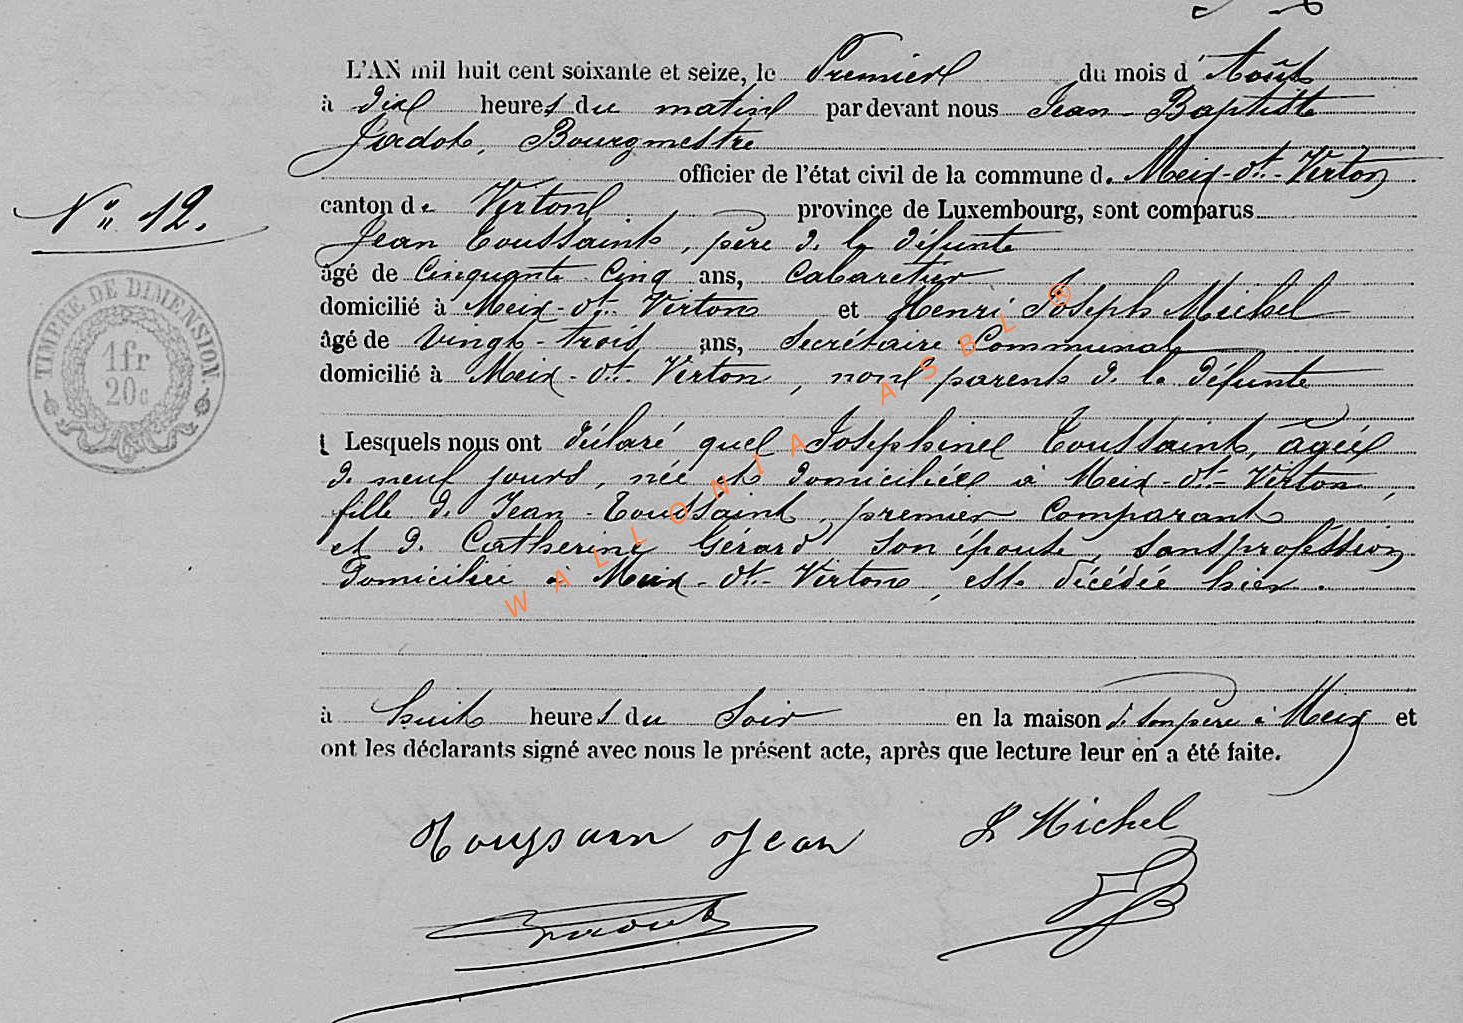 L'AN mil huit cent soixante et seize, le Premier du mois d'Août
à dix heures du matin pardevant nous Jean-Baptiste
Jadot, Bourgmestre
officier de l'état civil de la commune de Meix-dt-Virton
N° 12.
canton de Virton, province de Luxembourg, sont comparus
Jean Toussaint, père de la défunte
âgé de Cinquante-Cinq ans, Cabaretier
domicilié à Meix-dt-Virton et Henri Joseph Michel
âgé de vingt-trois ans, Secrétaire Communal
domicilié à Meix-dt-Virton, non parent de la défunte
Lesquels nous ont déclaré que Josephine Toussaint, âgée
de neuf jours, née et domiciliée à Meix-dt-Virton,
fille de Jean-Toussaint, premier Comparant
et de Catherine Gérard, son épouse, sans profession
domiciliée à Meix-dt-Virton, est décédée hier.
à huit heures du Soir en la maison de son père à Meix et
ont les déclarants signé avec nous le présent acte, après que lecture leur en a été faite.
Jean
H Michel
TIMBRE DE DIMENSION
1fr
20c
WALLONIA ASBL ®